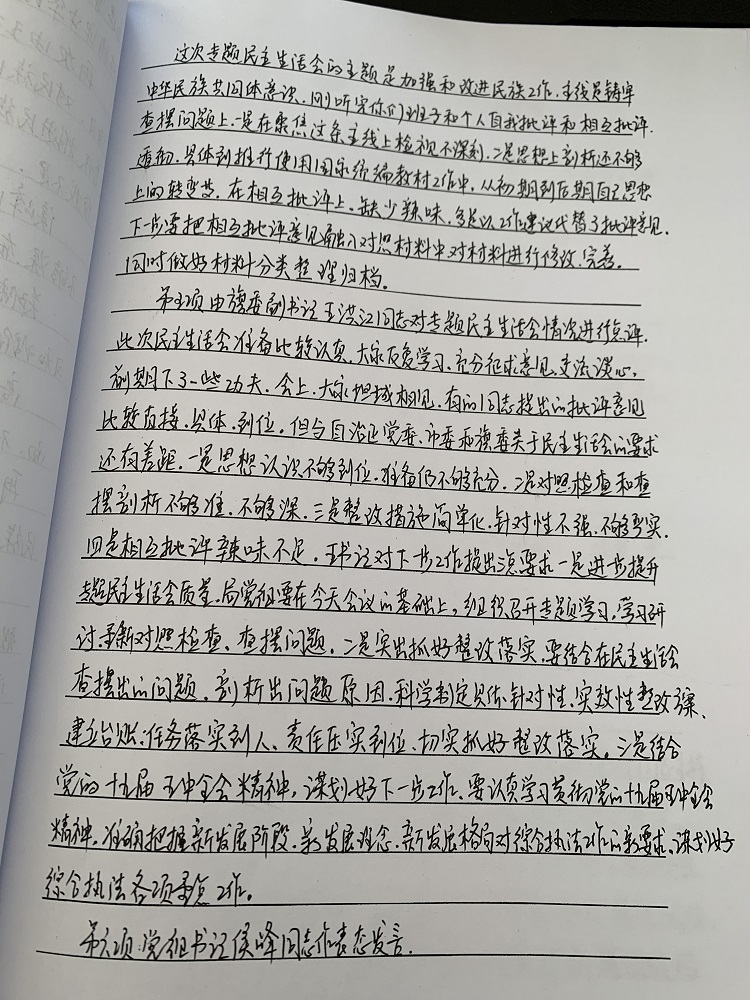 这次专题民主生活会的主题是加强和改进民族工作，主线是铸牢
中华民族共同体意识，刚听完你们班子和个人自我批评和相互批评，
查摆问题上，一是在聚焦这条主线上检视不深刻，二是思想上剖析还不够
透彻，具体到推行使用国家统编教材工作中，从初期到后期自己思想
上的转变等，在相互批评上，缺少辣味，多是以工作建议代替了批评意见，
下一步要把相互批评意见融入对照材料中对材料进行修改、完善。
同时做好材料分类整理归档。
第五项由旗委副书记王洪江同志对专题民主生活会情况进行点评。
此次民主生活会准备比较认真，大家反复学习，充分征求意见，交流谈心，
前期下了一些功夫，会上，大家坦诚相见，有的同志提出的批评意见
比较直接、具体、到位，但与自治区党委、市委和旗委关于民主生活会的要求
还有差距，一是思想认识不够到位，准备仍不够充分，二是对照检查和查
摆剖析不够准、不够深，三是整改措施简单化，针对性不强，不够夯实，
四是相互批评辣味不足，王书记对下一步工作提出三点要求一是进一步提升
专题民主生活会质量，局党组要在今天会议的基础上，组织召开专题学习，学习研
讨，重新对照检查、查摆问题，二是突出抓好整改落实，要结合在民主生活会
查摆出的问题，剖析出问题原因，科学制定具体、针对性、实效性整改方案、
建立台账，任务落实到人、责任压实到位，切实抓好整改落实。三是结合
党的十九届五中全会精神，谋划好下一步工作，要认真学习贯彻党的十九届五中全会
精神，准确把握新发展阶段、新发展理念、新发展格局对综合执法工作的新要求，谋划好
综合执法各项重点工作。
第六项，党组书记侯峰同志作表态发言。